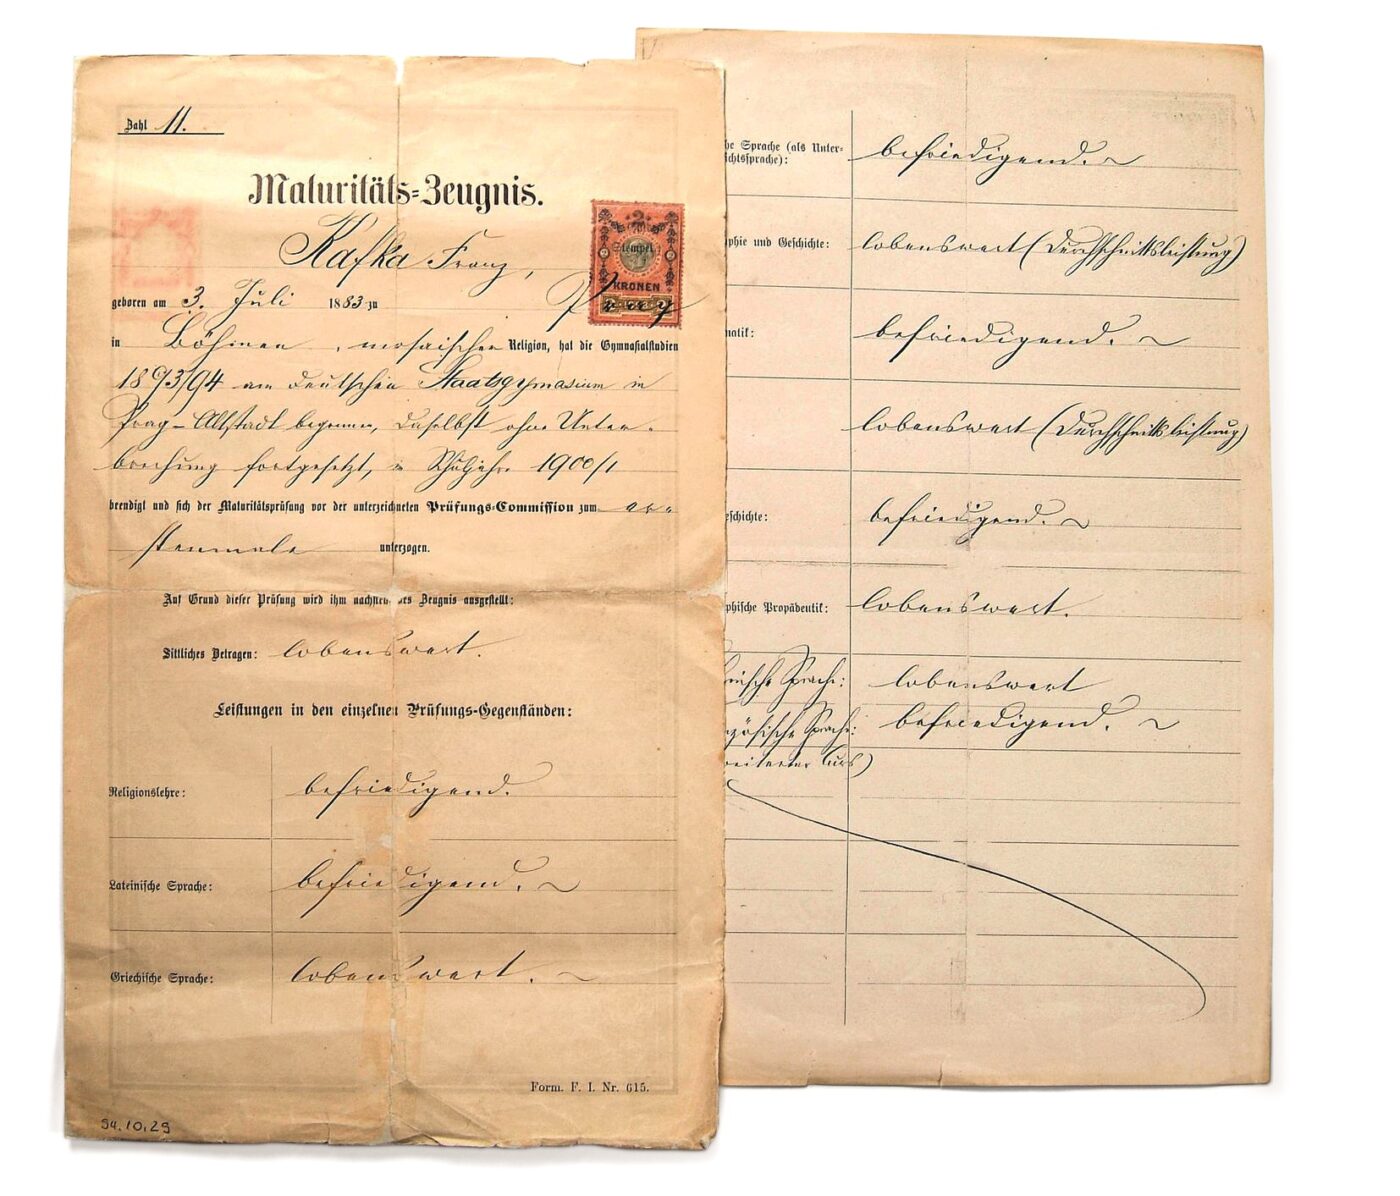 Zahl 11.
Maturitäts-Zeugnis.
Kafka Franz,
2
Stempel
KRONEN
geboren am 3. Juli 1883 zu
in Böhmen, mosaischer Religion, hat die Gymnasialstudien
1893/94 am deutschen Staatsgymnasium in
Prag-Altstadt begonnen, daselbst ohne Unter-
brechung fortgesetzt, im Schuljahre 1900/1
beendigt und sich der Maturitätsprüfung vor der unterzeichneten Prüfungs-Commission zum er-
stenmale unterzogen.
Auf Grund dieser Prüfung wird ihm Zeugnis ausgestellt:
Sittliches Betragen: lobenswert.
Leistungen in den einzelnen Prüfungs-Gegenständen:
Religionslehre: befriedigend.
Lateinische Sprache: befriedigend.
Griechische Sprache: lobenswert.
Form. F. I. Nr. 615.
94.10.29
he Sprache (als Unter- befriedigend.
ichtssprache):
phie und Geschichte: lobenswert (Durchschnittsleistung)
matik: befriedigend.
lobenswert (Durchschnittsleistung)
eschichte: befriedigend.
phische Propädeutik: lobenswert.
mische Sprache: lobenswert
zösische Sprache: befriedigend.
weiterter Curs)